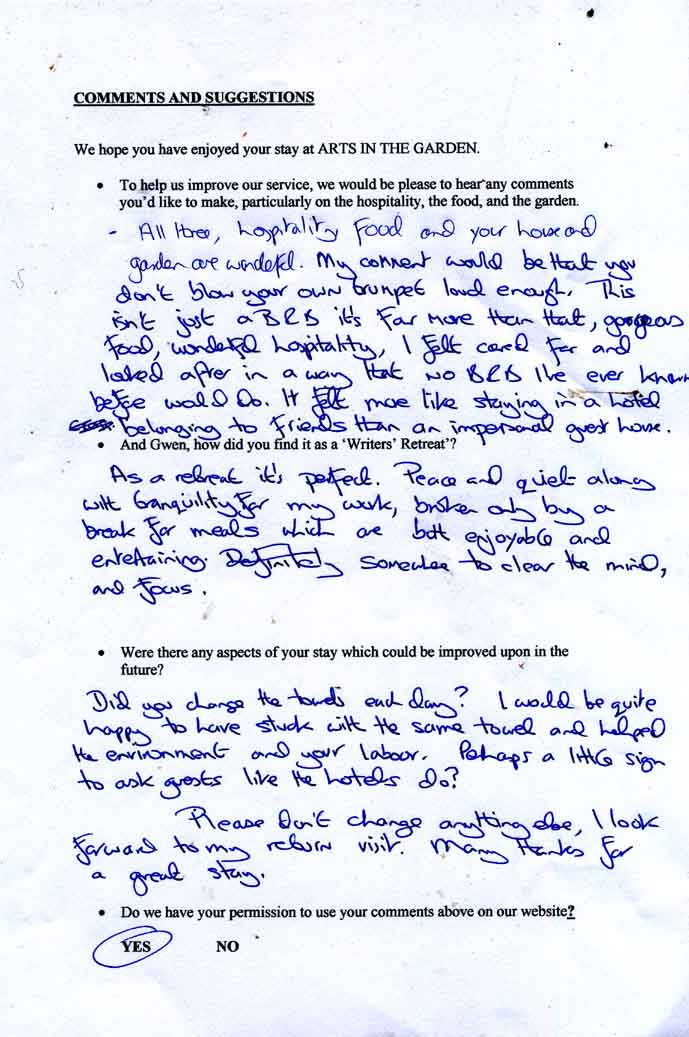 COMMENTS AND SUGGESTIONS
We hope you have enjoyed your stay at ARTS IN THE GARDEN.
• To help us improve our service, we would be please to hear any comments
you'd like to make, particularly on the hospitality, the food, and the garden.
- All three, hospitality food and your house and
garden are wonderful. My comment would be that you
don't blow your own trumpet loud enough. This
isn't just a B&B it's far more than that, gorgeous
food, wonderful hospitality, I felt cared for and
looked after in a way that no B&B I've ever known
before would do. It felt more like staying in a hotel
belonging to friends than an impersonal guest house.
• And Gwen, how did you find it as a 'Writers' Retreat'?
As a retreat it's perfect. Peace and quiet along
with tranquility for my work, broken only by a
break for meals which are both enjoyable and
entertaining. Definitely somewhere to clear the mind,
and focus.
• Were there any aspects of your stay which could be improved upon in the
future?
Did you change the towels each day? I would be quite
happy to have stuck with the same towel and helped
the environment and your labour. Perhaps a little sign
to ask guests like the hotels do?
Please don't change anything else, I look
forward to my return visit. Many thanks for
a great stay.
• Do we have your permission to use your comments above on our website?
YES NO